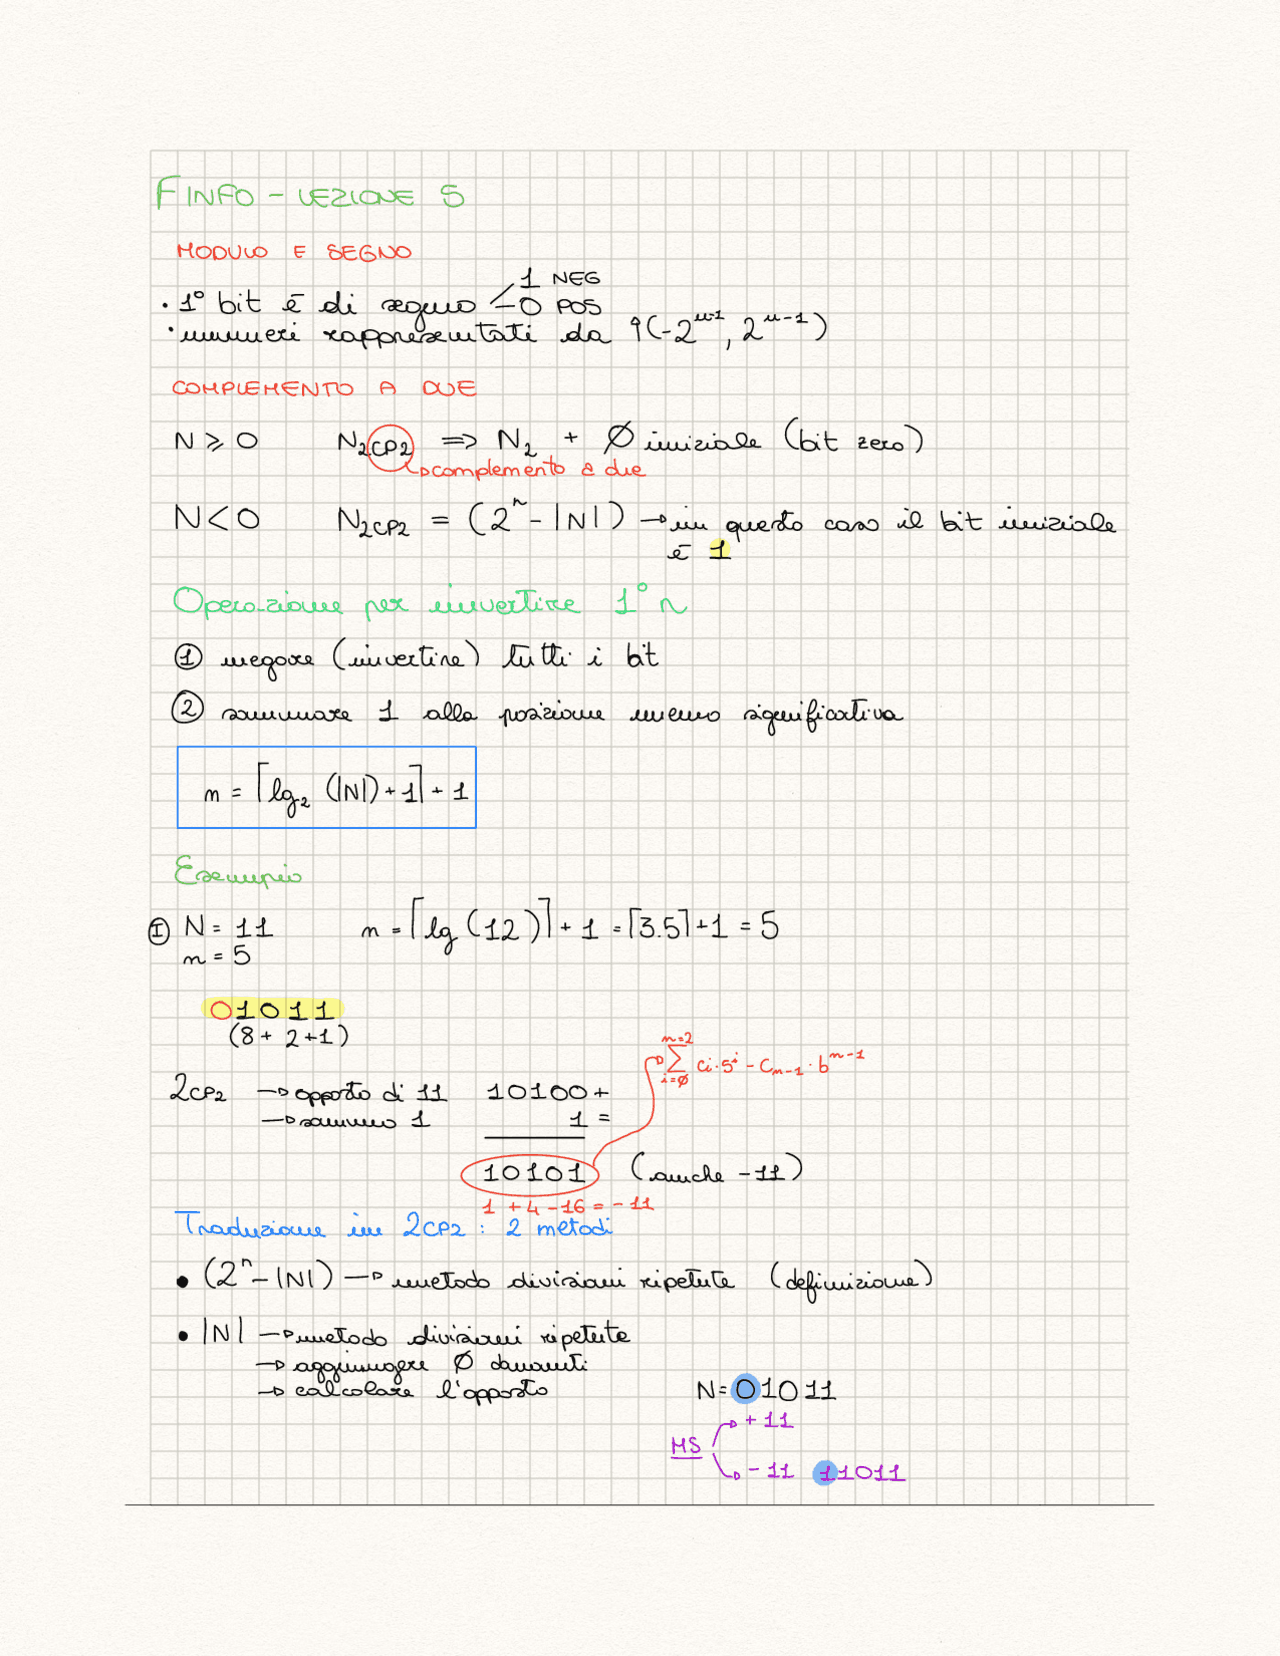 FINFO - LEZIONE 5
MODULO E SEGNO
1 NEG
• 1° bit è di segno
0 POS
• numeri rappresentati da (-2^{n-1}, 2^{n-1})
COMPLEMENTO A DUE
N ⩾ 0 N_{2CP2} ⇒ N_2 + Ø iniziale (bit zero)
↳ complemento a due
N < 0 N_{2CP2} = (2^n - |N|) → in questo caso il bit iniziale
è 1
Operazione per invertire 1° n
① negare (invertire) tutti i bit
② sommare 1 alla posizione meno significativa
n = ⌈lg_2 (|N|)+1⌉ + 1
Esempio
Ⓘ N = 11 n = ⌈lg (12)⌉ + 1 = ⌈3.5⌉+1 = 5
n = 5
01011
(8+ 2+1)
n=2
∑ ci·5^i - C_{n-1}·b^{n-1}
i=Ø
2CP2 → opposto di 11 10100+
→ sommo 1 1 =
10101 (anche -11)
1 +4 -16 = -11
Traduzione in 2CP2 : 2 metodi
• (2^n - |N|) → metodo divisioni ripetute (definizione)
• |N| → metodo divisioni ripetute
→ aggiungere Ø davanti
→ calcolare l'opposto N= 01011
+ 11
MS
- 11 11011